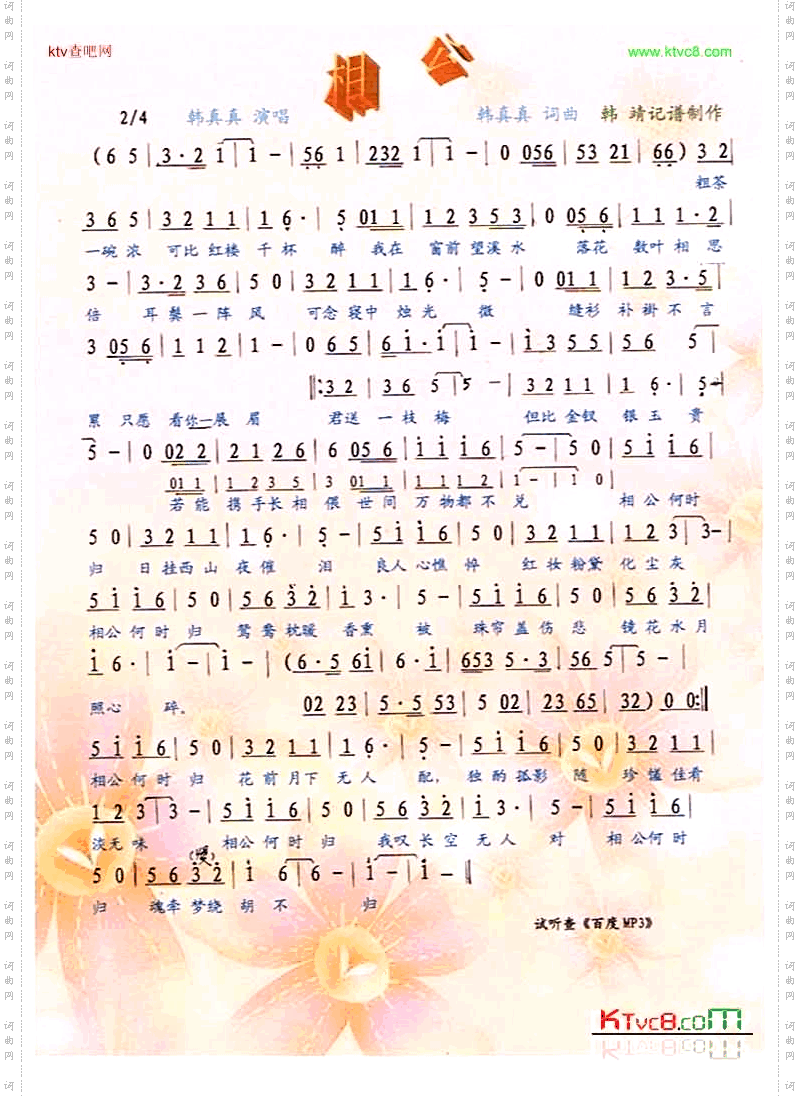 ktv查吧网
www.ktvc8.com
相公
2/4 韩真真 演唱 韩真真 词曲 韩 靖记谱制作
(6 5 | 3·2 1 | 1 - | 56 1 | 232 1 | 1 - | 0 056 | 53 21 | 66) 3 2
粗茶
3 6 5 | 3 2 1 1 | 1 6· | 5 01 1 | 1 2 3 5 3 | 0 05 6 | 1 1 1·2
一碗浓 可比红楼 千杯 醉 我在 窗前望溪水 落花 数叶相思
3 - | 3·2 3 6 | 5 0 | 3 2 1 1 | 1 6· | 5 - | 0 01 1 | 1 2 3·5
倍 耳鬓一阵 风 可念寝中 烛光 微 缝衫 补褂不言
3 05 6 | 1 1 2 | 1 - | 0 6 5 | 6 1·1 | 1 - | 1 3 5 5 | 5 6 5
‖: 3 2 | 3 6 5 | 5 - | 3 2 1 1 | 1 6· | 5 -
累 只愿 看你一展 眉 君送 一枝 梅 但比金钗 银玉 贵
5 - | 0 02 2 | 2 1 2 6 | 6 05 6 | 1 1 1 6 | 5 - | 5 0 | 5 1 1 6
01 1 | 1 2 3 5 | 3 01 1 | 1 1 1 2 | 1 - | 1 0
若能 携手长相 偎 世间 万物都不 兑 相公何时
5 0 | 3 2 1 1 | 1 6· | 5 - | 5 1 1 6 | 5 0 | 3 2 1 1 | 1 2 3 | 3 -
归 日挂西山 夜催 泪 良人心憔 悴 红妆粉黛 化尘灰
5 1 1 6 | 5 0 | 5 6 3 2 | 1 3· | 5 - | 5 6 1 1 | 5 0 | 5 6 3 2
相公何时归 鸳鸯枕暖 香熏 被 珠帘盖伤悲 镜花水月
1 6· | 1 - | 1 - | (6·5 61 | 6·1 | 653 5·3 | 56 5 | 5 -
照心 碎。
02 23 | 5·5 53 | 5 02 | 23 65 | 32) 0 0 :‖
5 1 1 6 | 5 0 | 3 2 1 1 | 1 6· | 5 - | 5 1 1 6 | 5 0 | 3 2 1 1
相公何时归 花前月下 无人 配, 独酌孤影 随 珍馐佳肴
1 2 3 | 3 - | 5 1 1 6 | 5 0 | 5 6 3 2 | 1 3· | 5 - | 5 1 1 6
淡无味 相公何时归 我叹长空 无人 对 相公何时
(慢)
5 0 | 5 6 3 2 | 1 6 | 6 - | 1 - | 1 - ‖
归 魂牵梦绕 胡不 归
试听查《百度MP3》
KTVC8.COM
词曲网